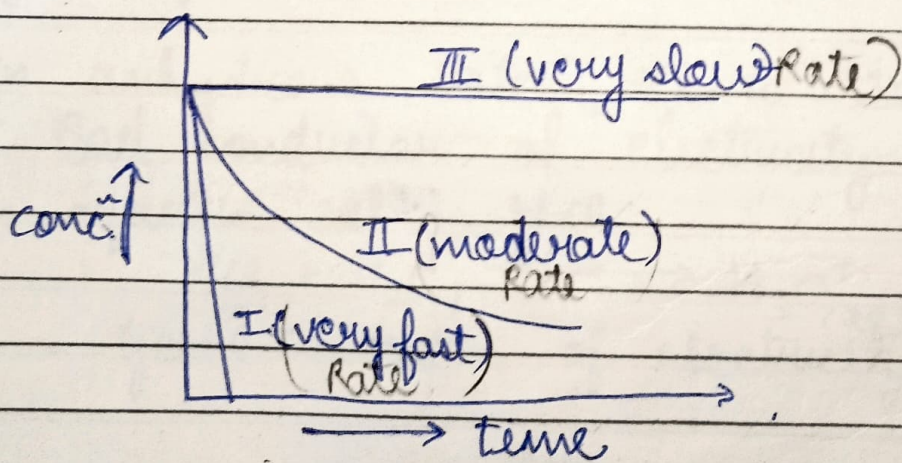 III (very slow) Rate)
concⁿ.
II (moderate)
Rate
I (very fast)
Rate
teme